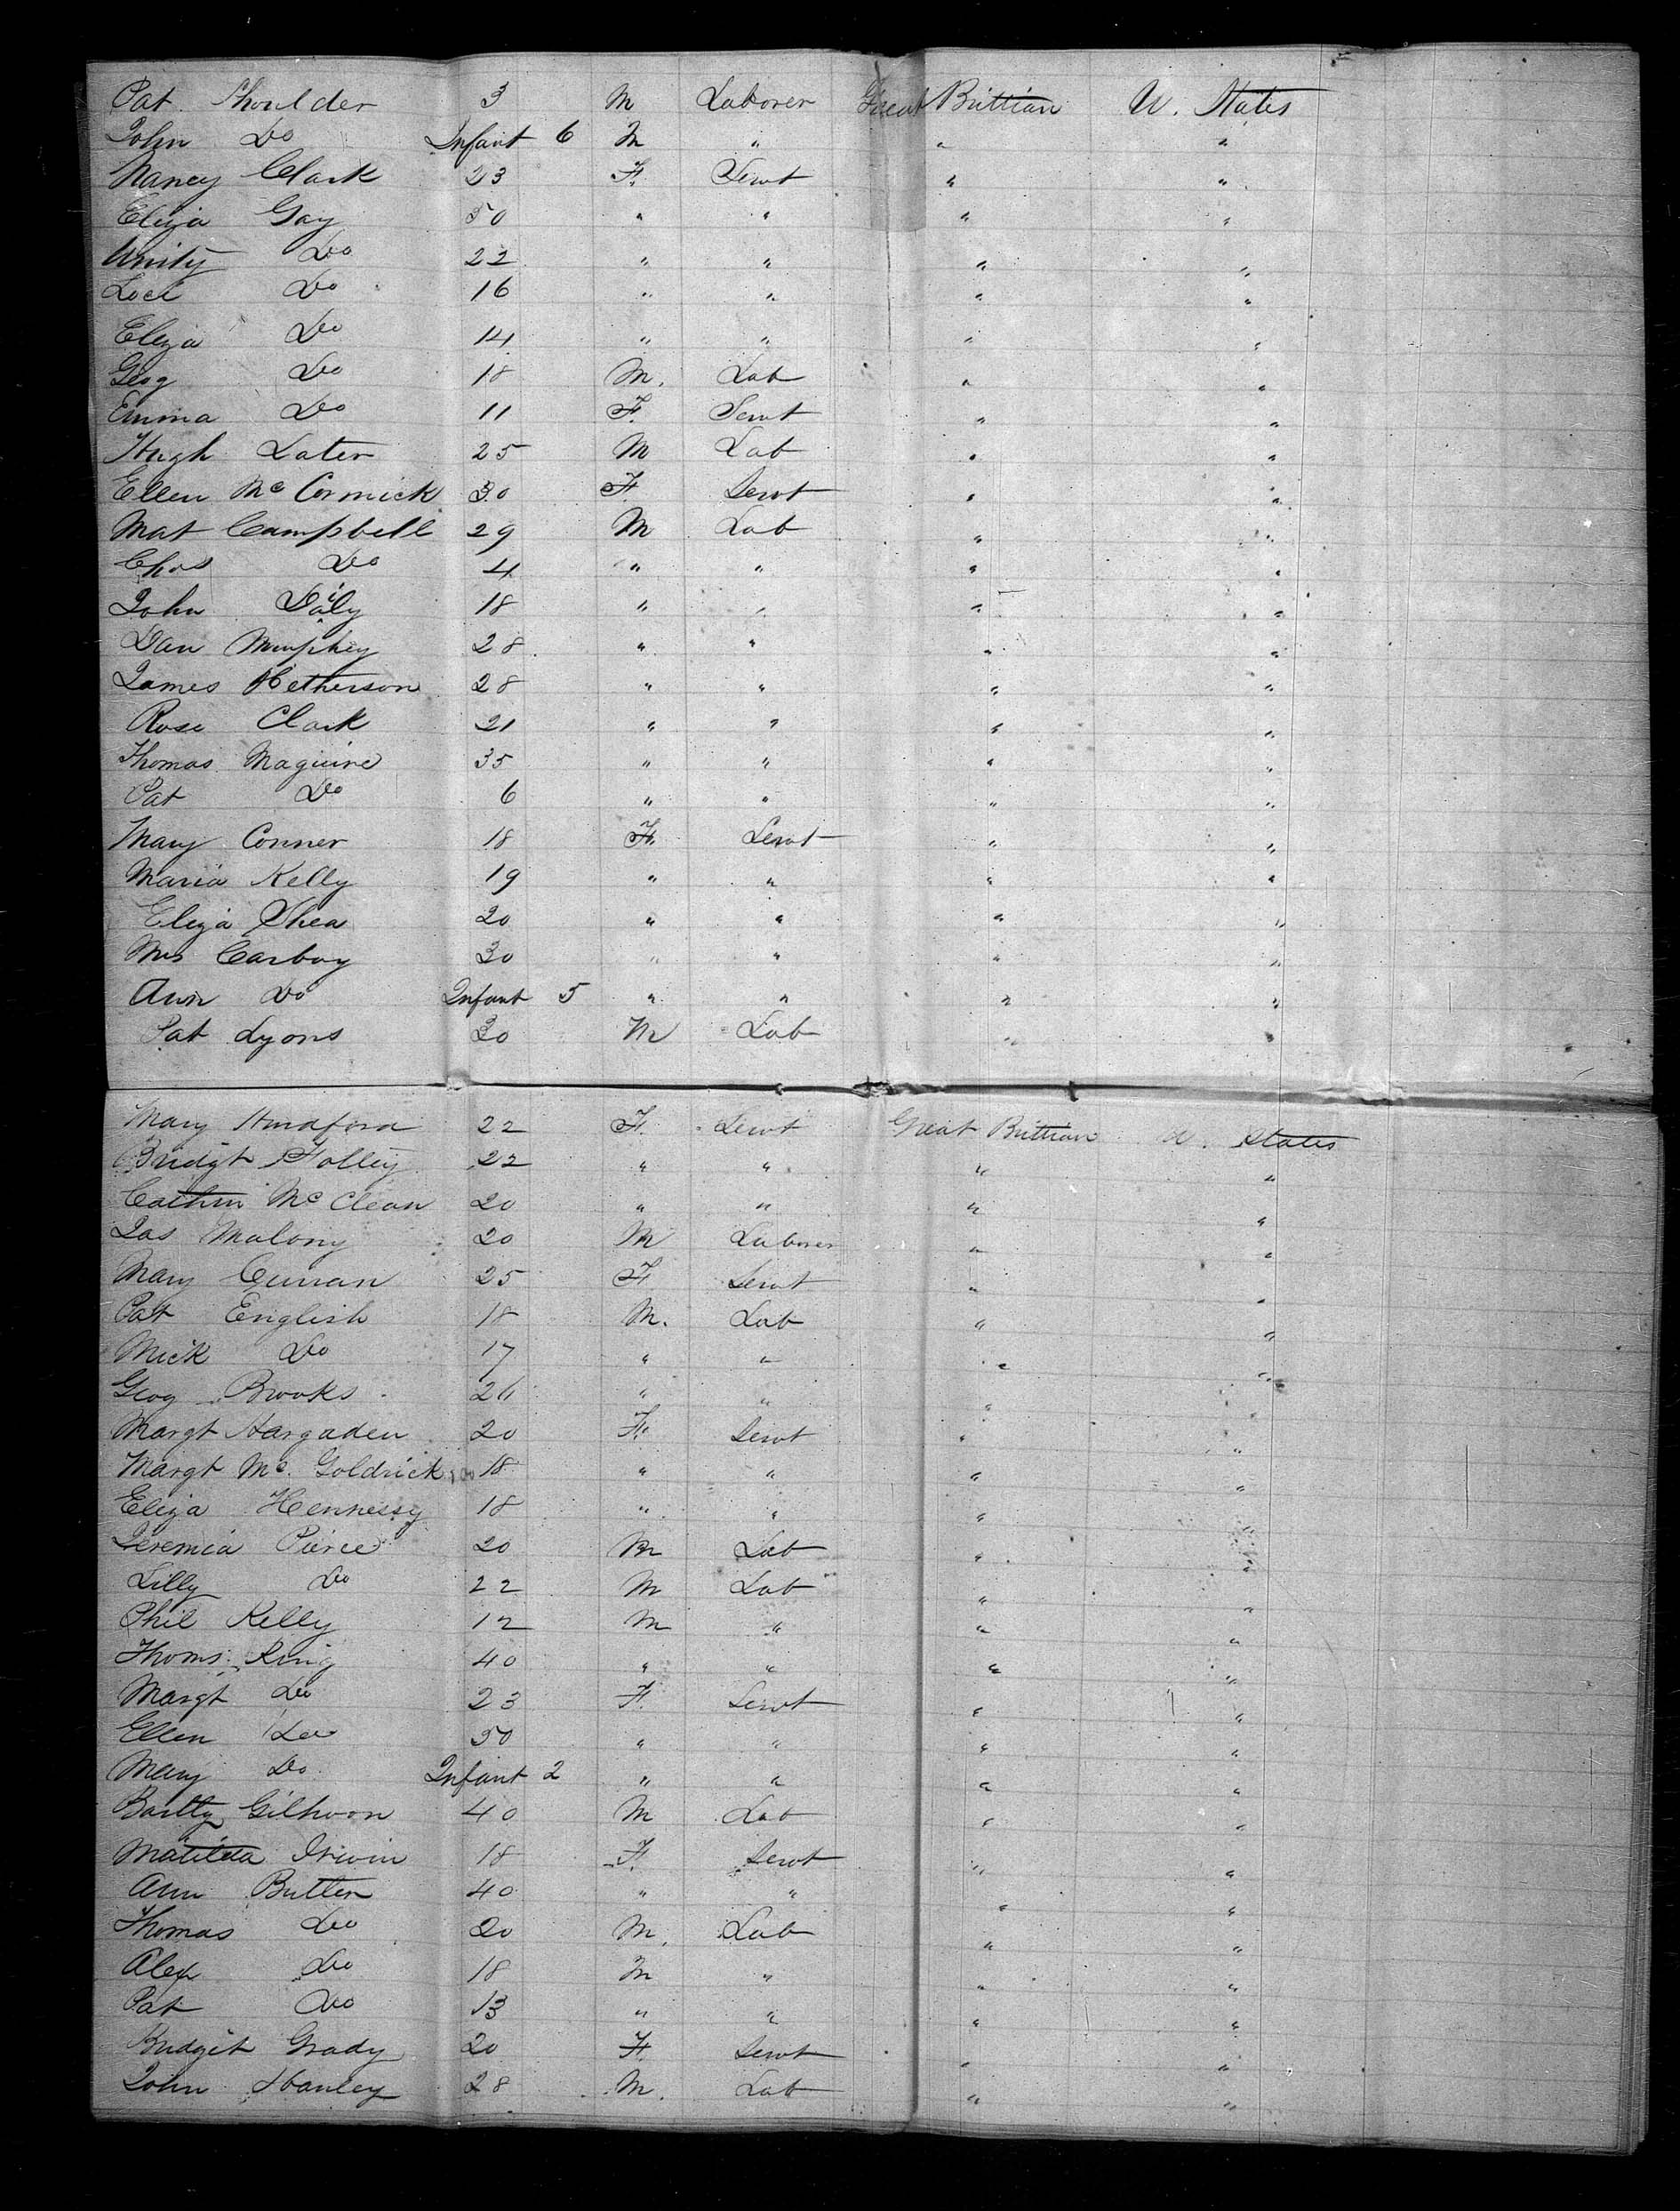 Pat Shoulder 3 M Laborer Great Brittian U. States
John Do Infant 6 M " " "
Nancy Clark 23 F. Servt " "
Eliza Gay 50 " " " "
Unity Do 22 " " " "
Do 16 " " " "
Eliza Do 14 " " " "
Geog Do 18 M. Lab " "
Emma Do 11 F. Servt " "
Hugh Later 25 M Lab " "
Ellen Mc Cormick 30 F. Servt " "
Mat Campbell 29 M Lab " "
Chas Do 4 " " " "
John Daly 18 " " " "
Dan Murphey 28 " " " "
James Hetherson 28 " " " "
Rose Clark 21 " " " "
Thomas Maguire 35 " " " "
Pat Do 6 " " " "
Mary Conner 18 F. Servt " "
Maria Kelly 19 " " " "
Eliza Shea 20 " " " "
Mrs Carboy 30 " " " "
Ann Do Infant 5 " " " "
Pat Lyons 30 M Lab " "
Mary 22 F. Servt Great Brittian U. States
Bridgt Folley 22 " " " "
Cathrn Mc Clean 20 " " " "
Jas Malony 20 M Laborer " "
Mary Curran 25 F Servt " "
Pat English 18 M. Lab " "
Mick Do 17 " " " "
Geog Brooks 26 " " " "
Margt Hargaden 20 F. Servt " "
Margt Mc. Goldrick 18 " " " "
Eliza Hennessy 18 " " " "
Jeremia Pierce 20 M Lab " "
Lilly Do 22 M Lab " "
Phil Kelly 12 M " " "
Thoms King 40 " " " "
Margt Do 23 F. Servt " "
Ellen Do 50 " " " "
Mary Do Infant 2 " " " "
Bartty Gilhoon 40 M Lab " "
Matilda Irwin 18 F. Servt " "
Ann Butter 40 " " " "
Thomas Do 20 M. Lab " "
Alex Do 18 M " " "
Pat Do 13 " " " "
Bridget Grady 20 F. Servt " "
John Hanley 28 M. Lab " "